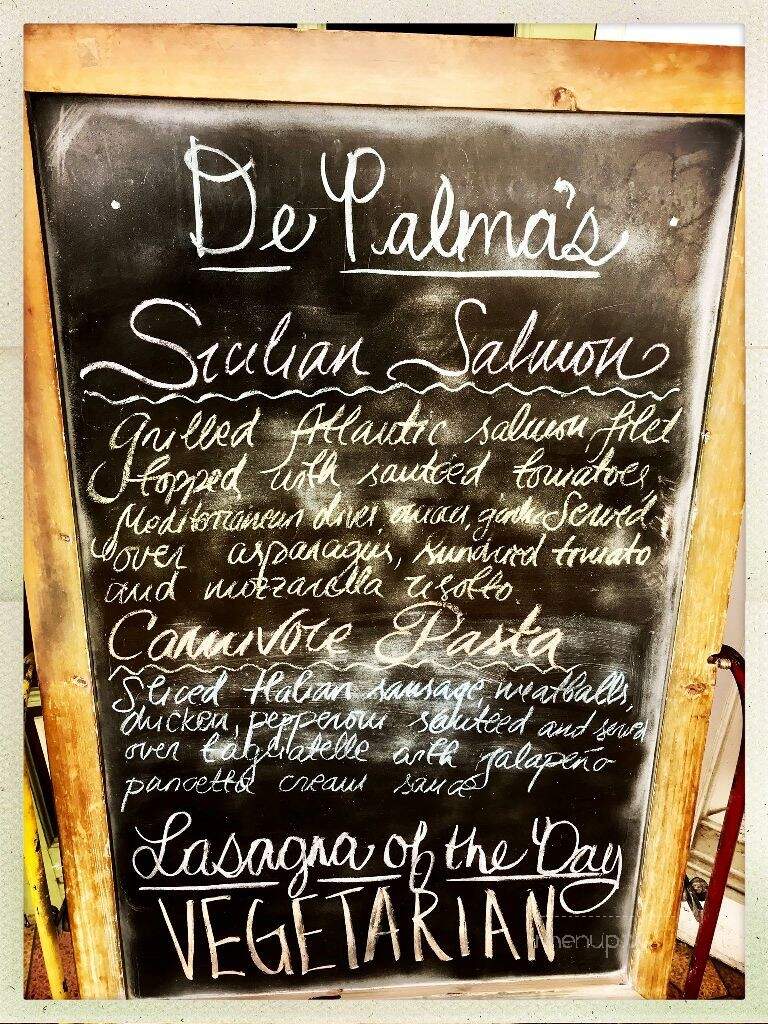 De Palma's
Sicilian Salmon
Grilled Atlantic salmon filet
topped with sautéed tomatoes,
Mediterranean olives, onion, garlic. Served
over asparagus, sundried tomato
and mozzarella risotto.
Carnivore Pasta
Sliced Italian sausage, meatballs,
chicken, pepperoni sautéed and served
over tagliatelle with jalapeño
pancetta cream sauce
Lasagna of the Day
VEGETARIAN